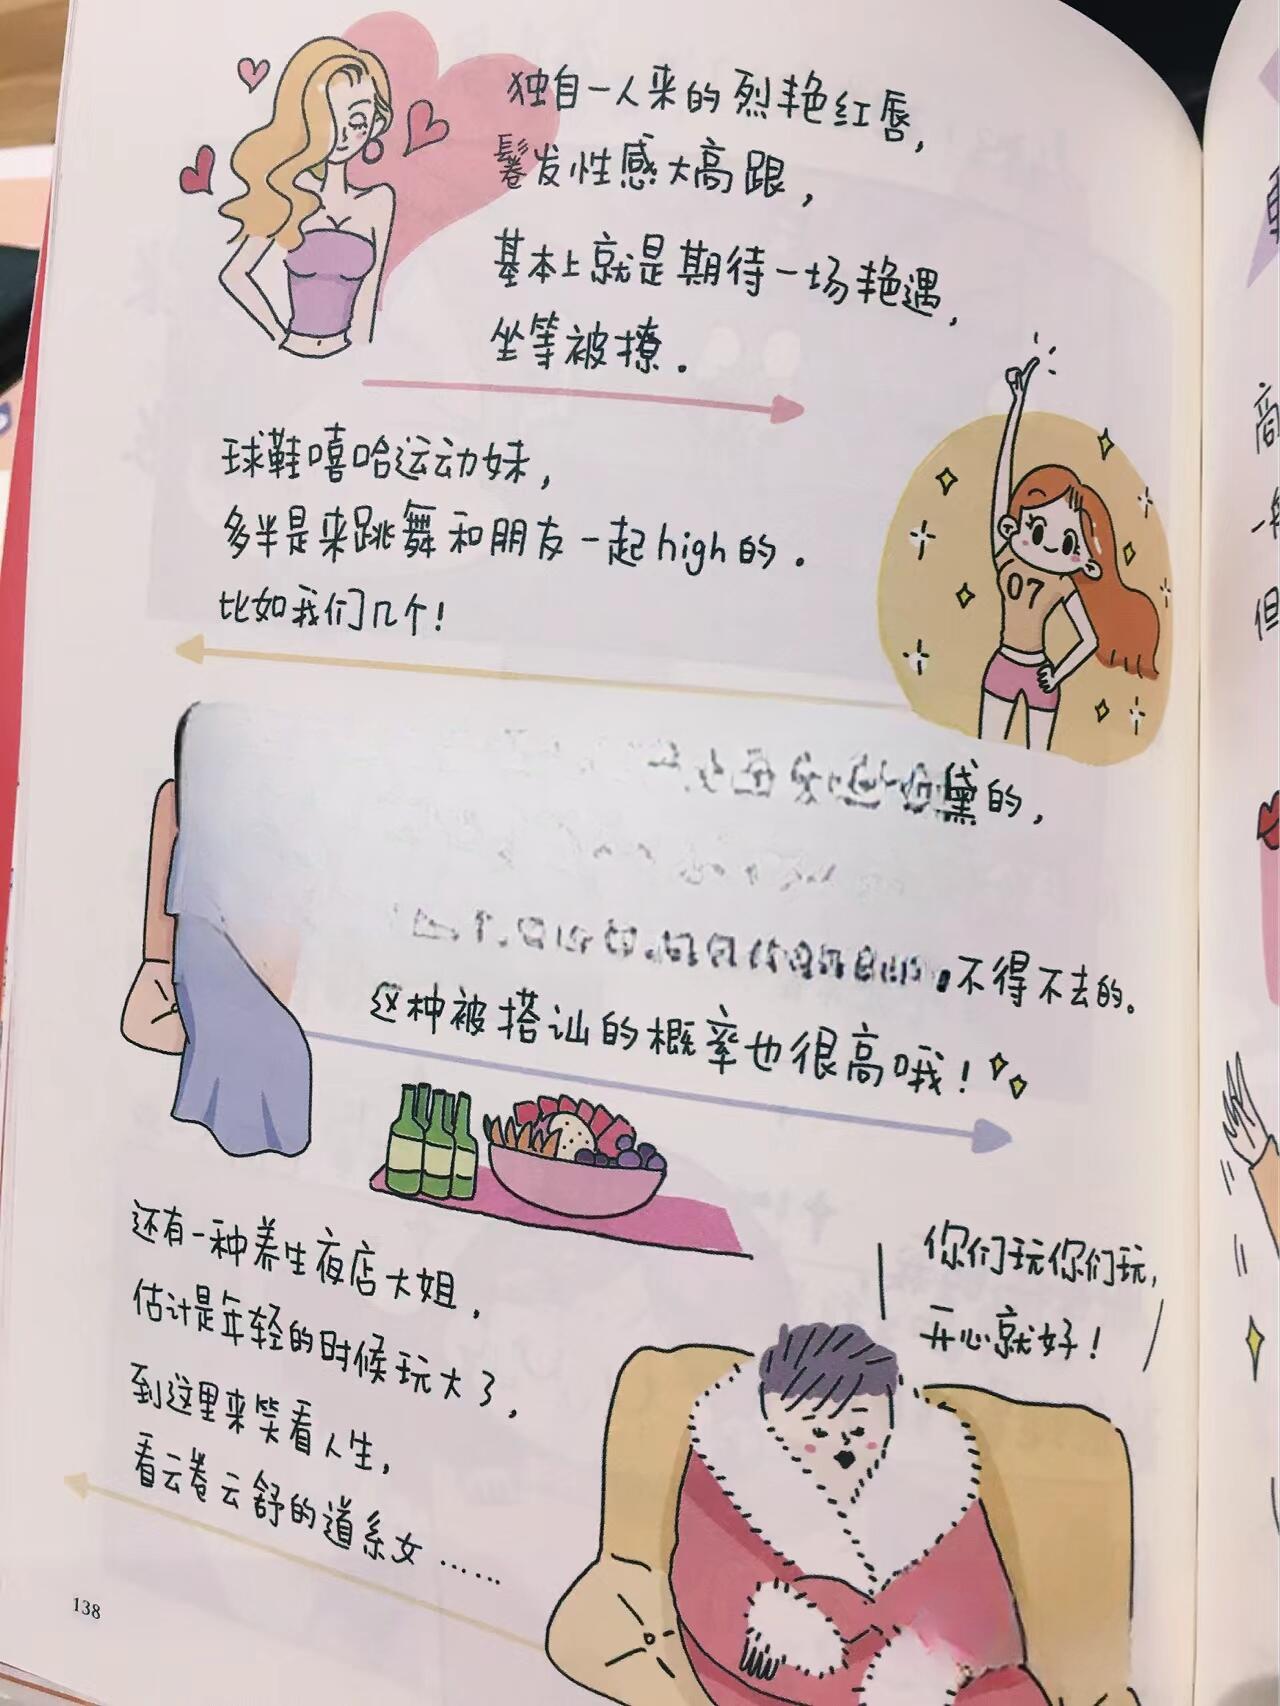 独自一人来的烈艳红唇，
鬈发性感大高跟，
基本上就是期待一场艳遇，
坐等被撩．
球鞋嘻哈运动妹，
多半是来跳舞和朋友一起high的．
比如我们几个！
07
黛的，
不得不去的。
这种被搭讪的概率也很高哦！
还有一种养生夜店大姐，
估计是年轻的时候玩大了，
到这里来笑看人生，
看云卷云舒的道系女……
你们玩你们玩，
开心就好！
138